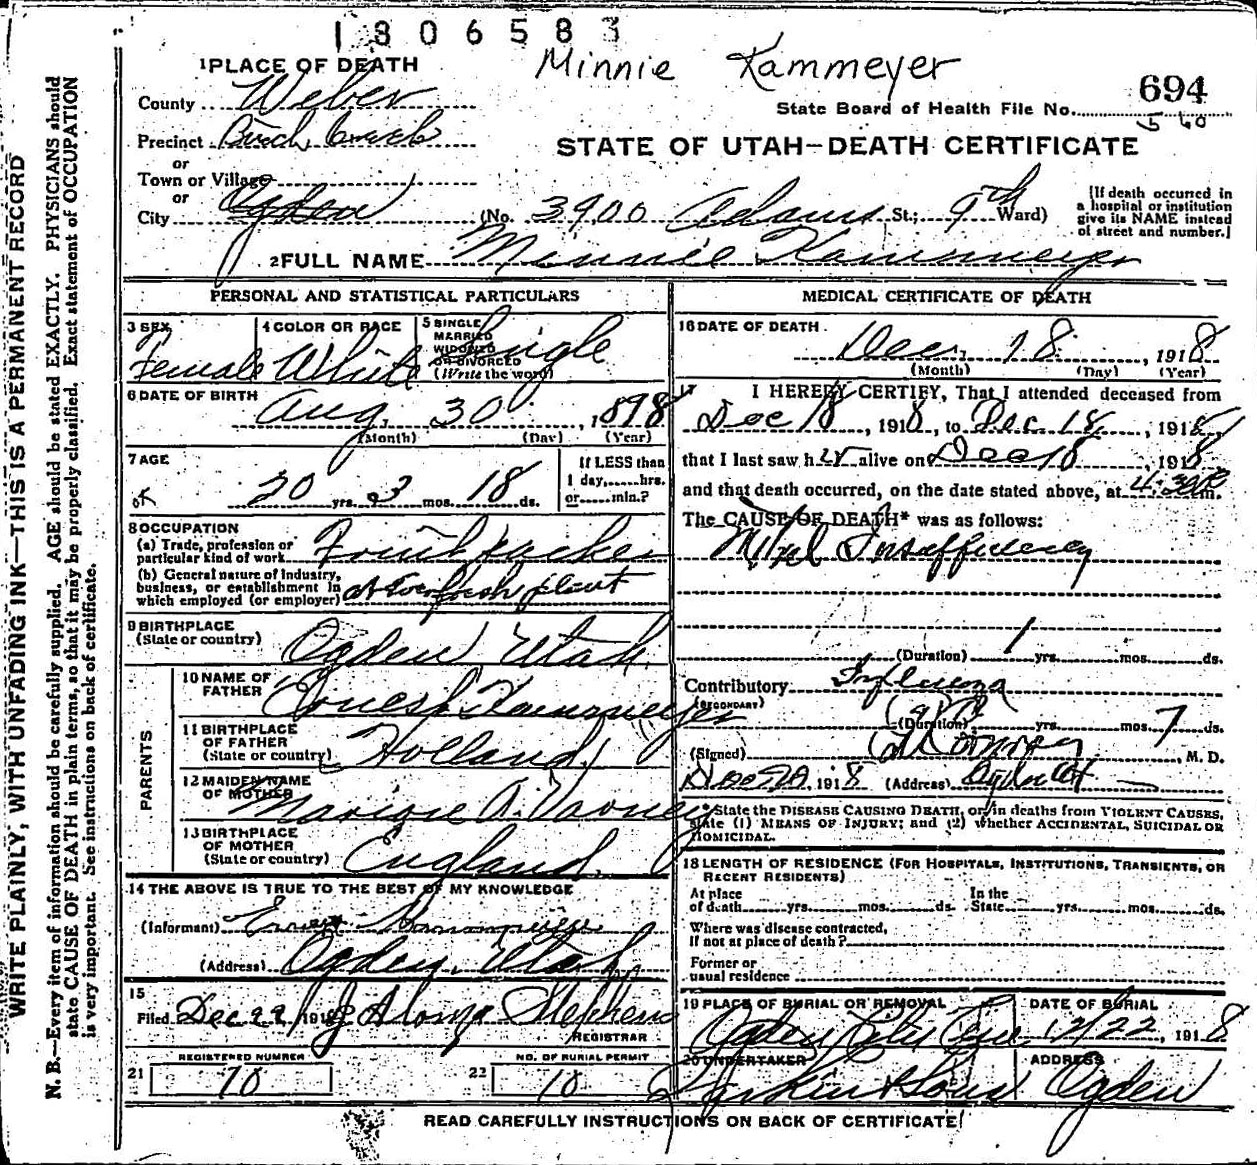 1306583
Minnie Kammeyer
1 PLACE OF DEATH
County Weber
State Board of Health File No. 694
5 60
Precinct Burch Creek
STATE OF UTAH—DEATH CERTIFICATE
or
Town or Village
or
City Ogden (No. 3900 Adams St.; 9th Ward)
[If death occurred in
a hospital or institution
give its NAME instead
of street and number.]
2 FULL NAME Minnie Kammeyer
PERSONAL AND STATISTICAL PARTICULARS
3 SEX Female
4 COLOR OR RACE White
5 SINGLE
MARRIED
WIDOWED
OR DIVORCED
(Write the word) Single
6 DATE OF BIRTH
Aug. 30, 1898
(Month) (Day) (Year)
7 AGE
20 yrs. 3 mos. 18 ds.
If LESS than
1 day,......hrs.
or......min.?
8 OCCUPATION
(a) Trade, profession or
particular kind of work
(b) General nature of industry,
business, or establishment in
which employed (or employer) plant
9 BIRTHPLACE
(State or country) Ogden Utah
PARENTS
10 NAME OF
FATHER Kammeyer
11 BIRTHPLACE
OF FATHER
(State or country) Holland
12 MAIDEN NAME
OF MOTHER
13 BIRTHPLACE
OF MOTHER
(State or country) England
14 THE ABOVE IS TRUE TO THE BEST OF MY KNOWLEDGE
(Informant) Kammeyer
(Address) Ogden, Utah
15
Filed Dec 22, 1918 Stephens
REGISTRAR
REGISTERED NUMBER
21 70
NO. OF BURIAL PERMIT
22 10
MEDICAL CERTIFICATE OF DEATH
16 DATE OF DEATH
Dec. 18, 1918
(Month) (Day) (Year)
17 I HEREBY CERTIFY, That I attended deceased from
Dec 18, 1918, to Dec 18, 1918,
that I last saw her alive on Dec 18, 1918
and that death occurred, on the date stated above, at 4:30 m.
The CAUSE OF DEATH* was as follows:
Mitral Insufficiency
(Duration) 1 yrs. mos. ds.
Contributory Influenza
(SECONDARY)
(Duration) yrs. mos. 7 ds.
(Signed) M. D.
Dec 20, 1918 (Address)
*State the DISEASE CAUSING DEATH, or, in deaths from VIOLENT CAUSES,
state (1) MEANS OF INJURY; and (2) whether ACCIDENTAL, SUICIDAL OR
HOMICIDAL.
18 LENGTH OF RESIDENCE (FOR HOSPITALS, INSTITUTIONS, TRANSIENTS, OR
RECENT RESIDENTS)
At place
of death yrs. mos. ds.
In the
State yrs. mos. ds.
Where was disease contracted,
if not at place of death?
Former or
usual residence
19 PLACE OF BURIAL OR REMOVAL
Ogden City Cem.
DATE OF BURIAL
12/22, 1918
20 UNDERTAKER
Larkin & Sons
ADDRESS
Ogden
READ CAREFULLY INSTRUCTIONS ON BACK OF CERTIFICATE
WRITE PLAINLY, WITH UNFADING INK—THIS IS A PERMANENT RECORD
N. B.—Every item of information should be carefully supplied. AGE should be stated EXACTLY. PHYSICIANS should
state CAUSE OF DEATH in plain terms, so that it may be properly classified. Exact statement of OCCUPATION
is very important. See instructions on back of certificate.